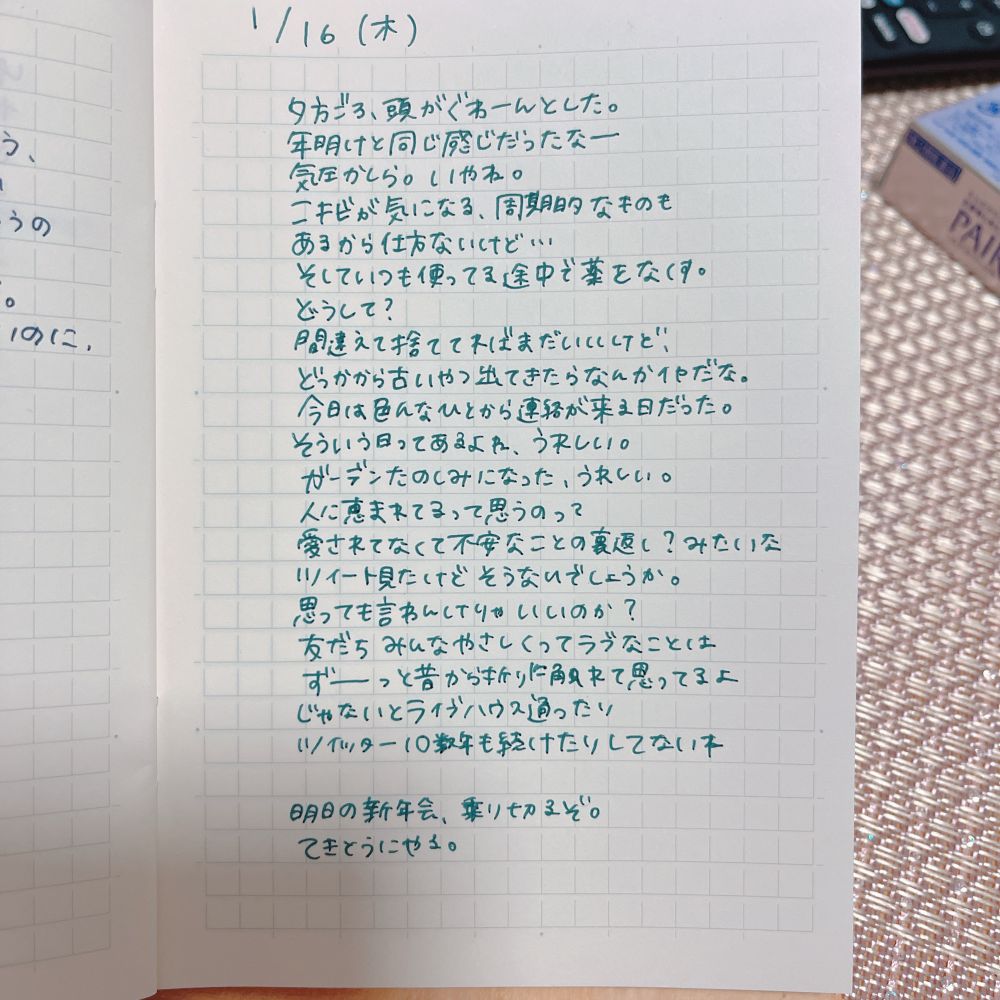 う、
うの
。
いのに、
1/16(木)
夕方ごろ、頭がぐわーんとした。
年明けと同じ感じだったなー
気圧かしら。いやね。
ニキビが気になる、周期的なものも
あるから仕方ないけど…
そしていつも使ってる途中で薬をなくす。
どうして?
間違えて捨ててればまだいいけど、
どっかから古いやつ出てきたらなんかイヤだな。
今日は色んなひとから連絡が来る日だった。
そういう日ってあるよね、うれしい。
ガーデンたのしみになった、うれしい。
人に恵まれてるって思うのって
愛されてなくて不安なことの裏返し?みたいな
ツイート見たけどそうないでしょうか。
思っても言わんけりゃいいのか?
友だちみんなやさしくってラブなことは
ずーーっと昔から折りに触れて思ってるよ
じゃないとライブハウス通ったり
ツイッター10数年も続けたりしてないネ
明日の新年会、乗り切るぞ。
てきとうにやる。
PAIN